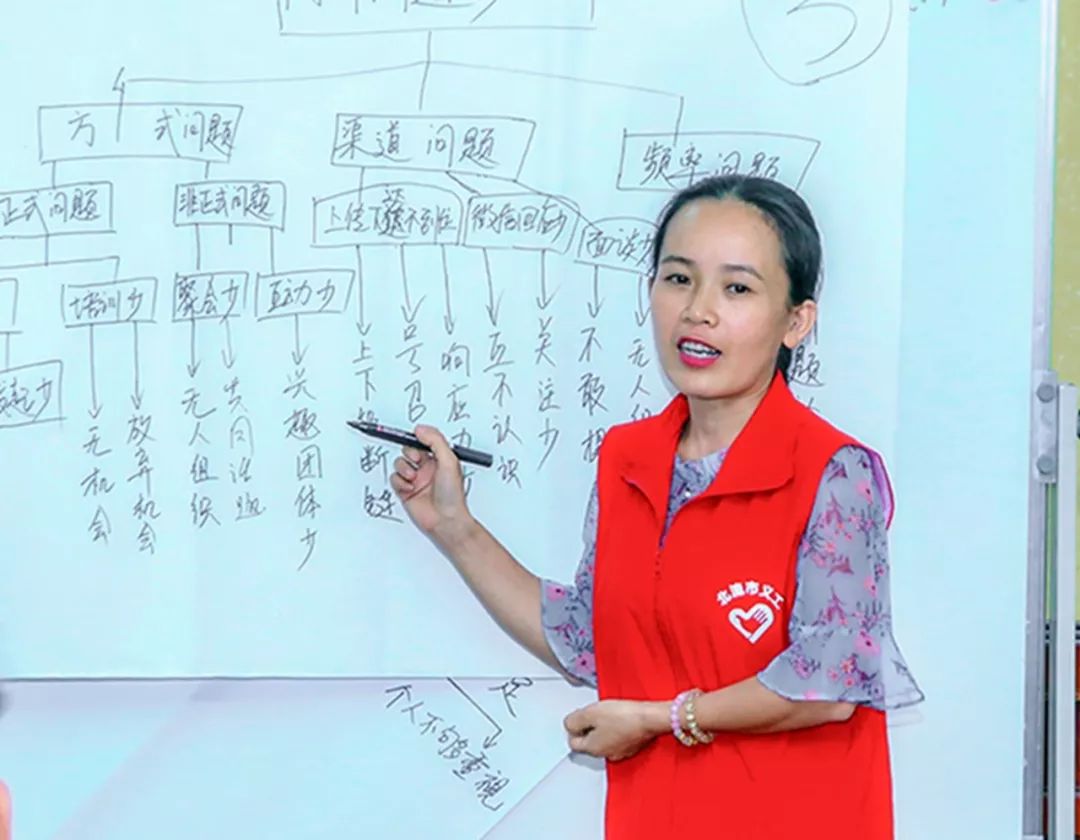 方式问题
渠道问题
频率问题
正式问题
非正式问题
微信回应少
面谈少
培训少
聚会少
互动少
无机会
放弃机会
无人组织
共同话题
兴趣团体少
上下
断链
号召
响应力
互不认识
关注少
不敢
无人组
题
足
个人不够重视
北流市义工